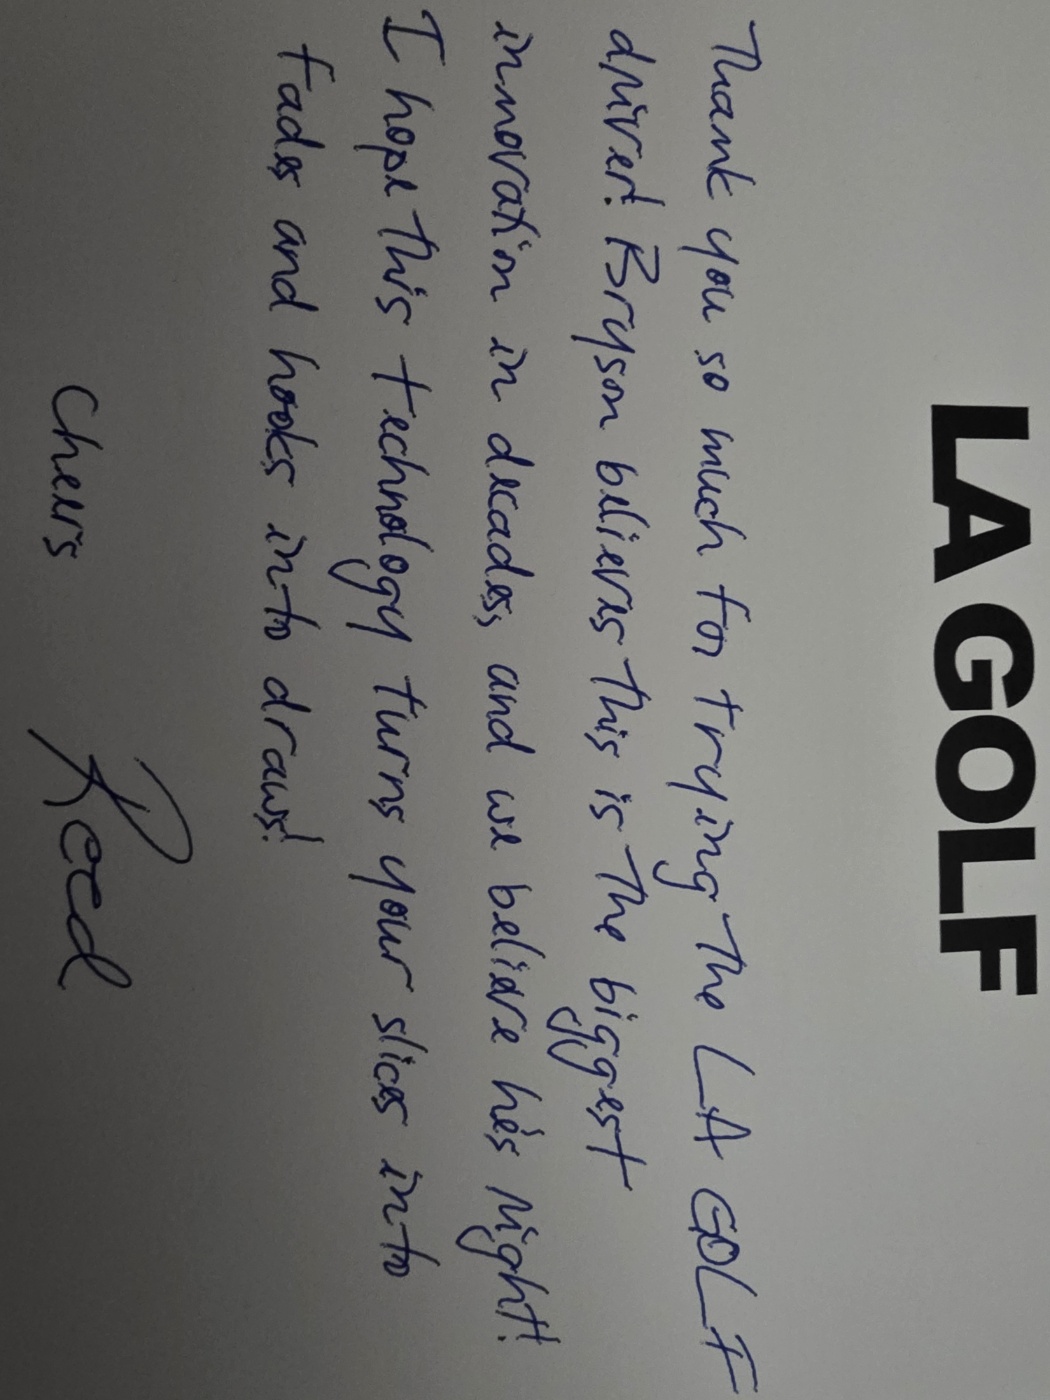 LA GOLF
Thank you so much for trying the LA GOLF
driver! Bryson believes this is the biggest
innovation in decades, and we believe he's right!
I hope this technology turns your slices into
fades and hooks into draws!
Cheers
Reed